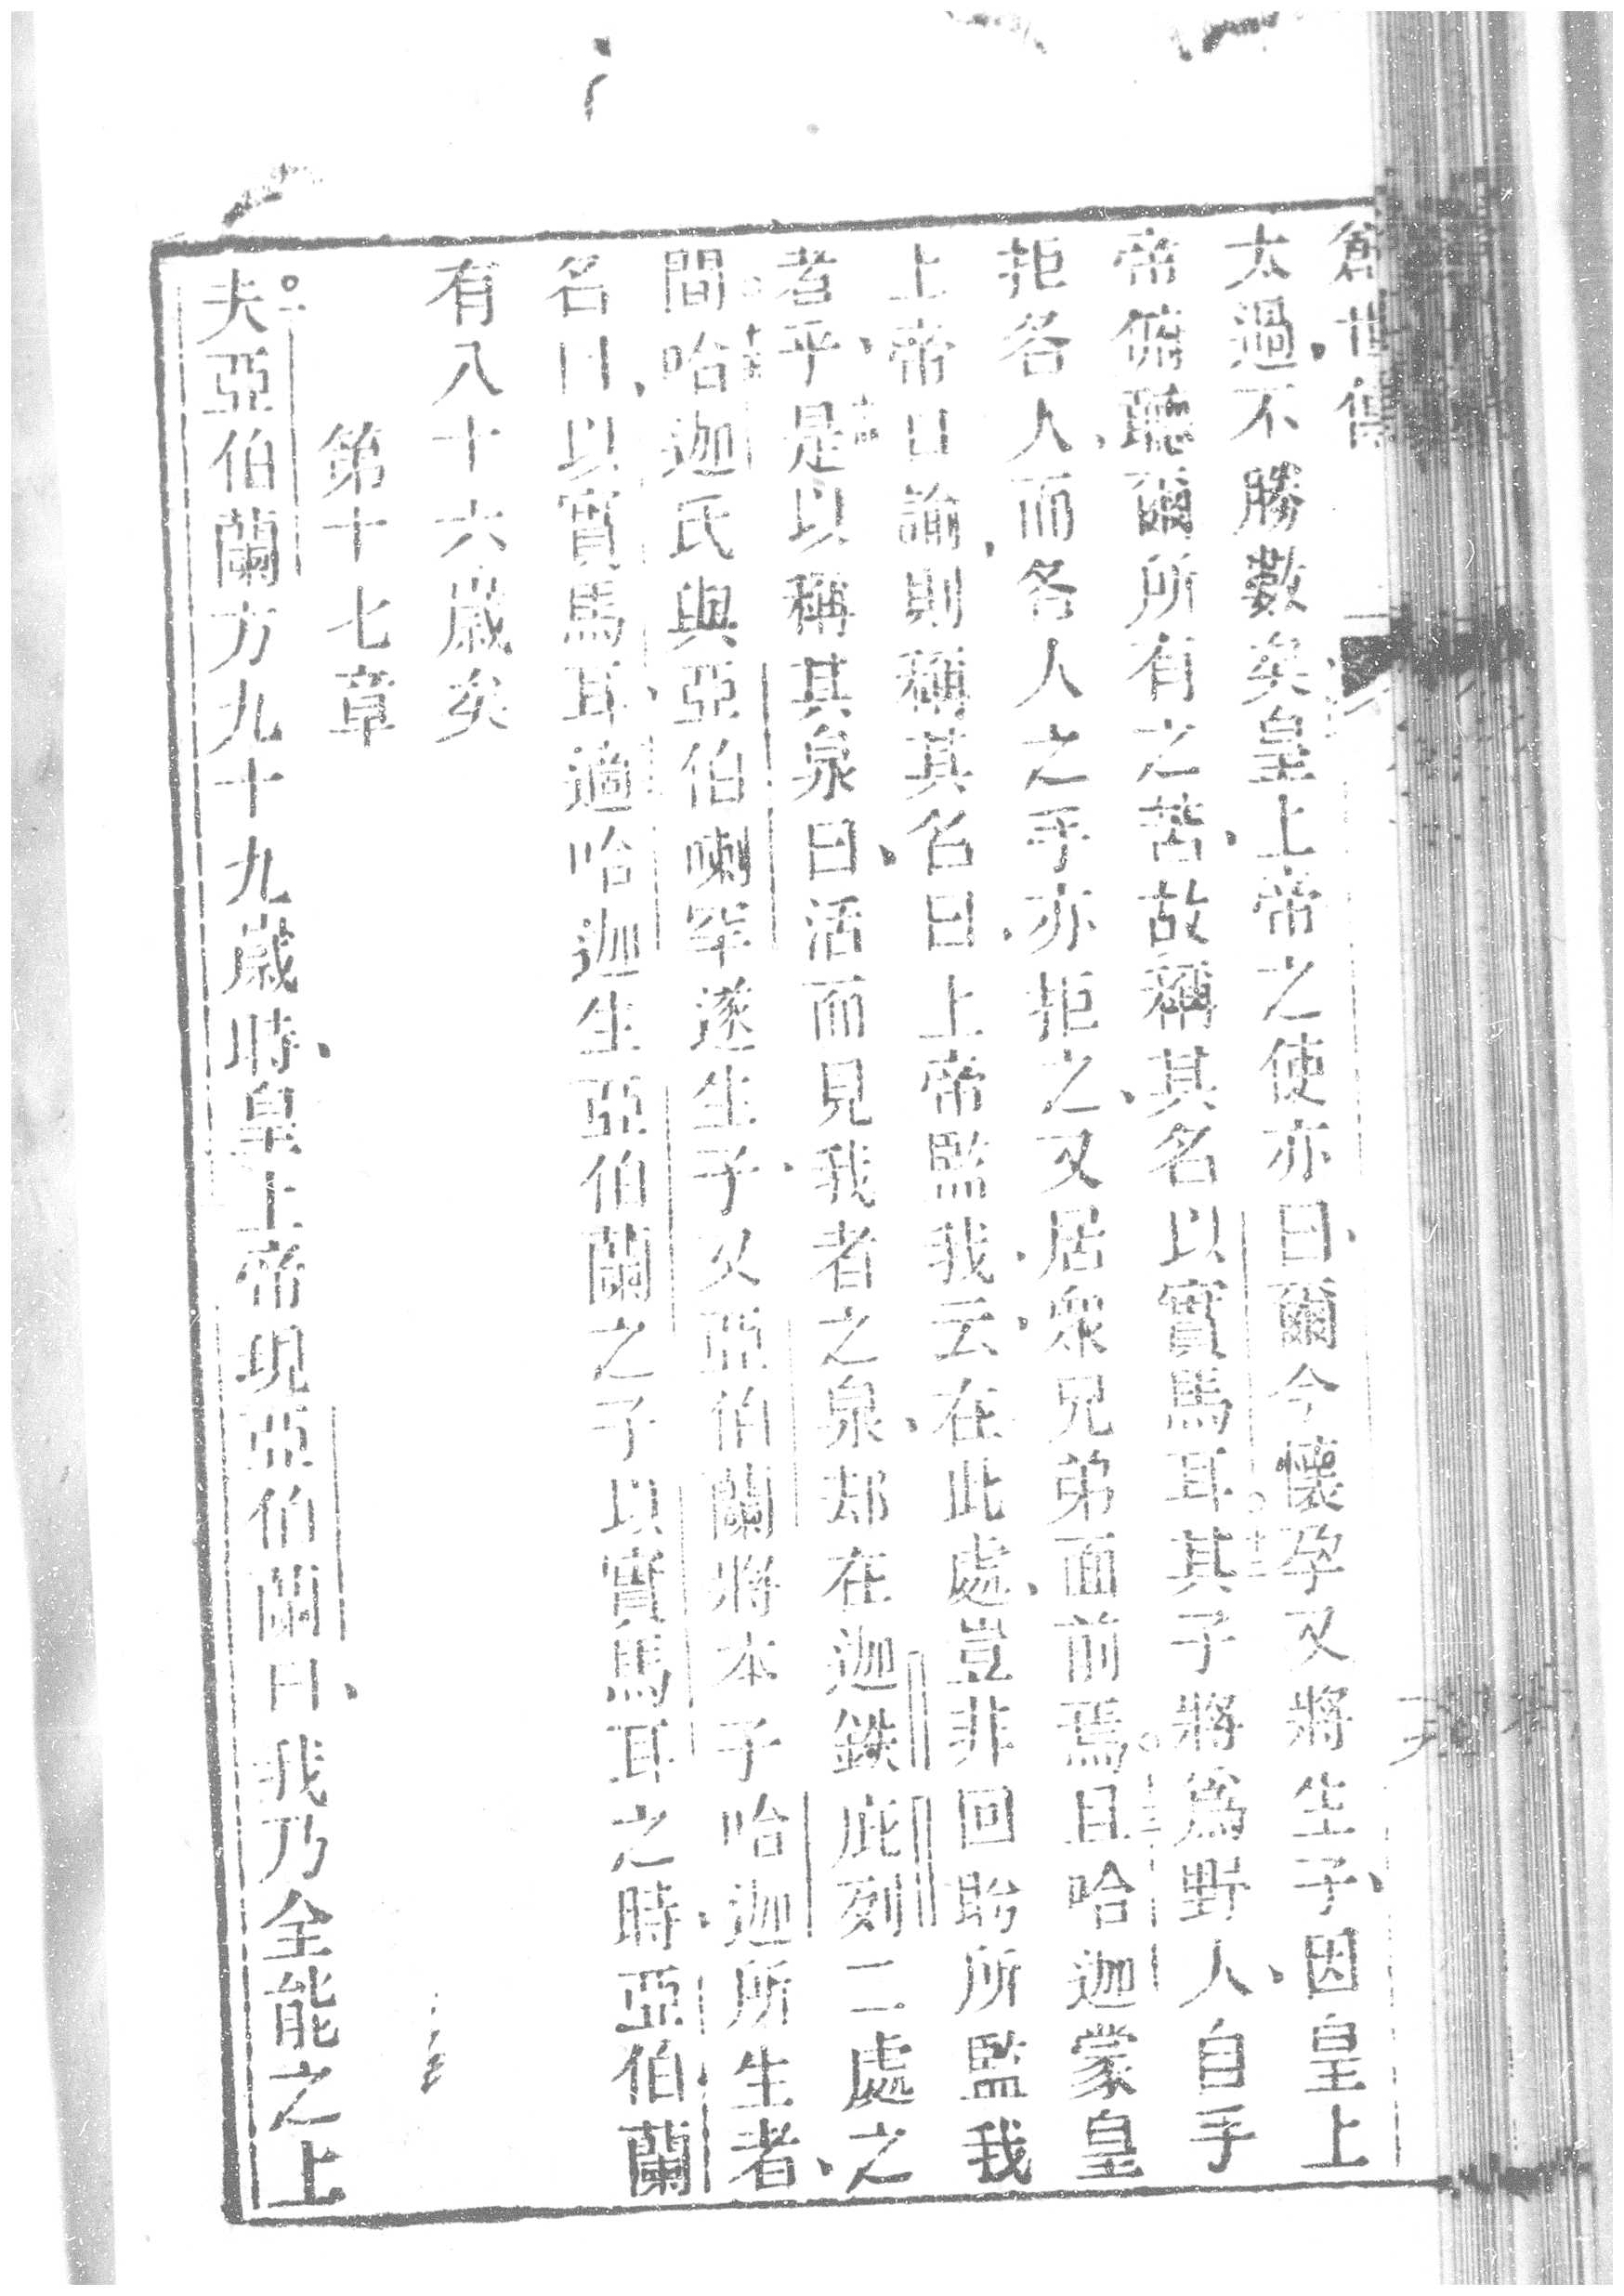 太過不勝數矣皇上帝之使亦曰爾今懷孕又將生子因皇上
帝俯聽爾所有之苦故稱其名以實馬耳其子將爲野人自手
拒各人而各人之手亦拒之又居衆兄弟面前焉且哈迦蒙皇
上帝日諭則稱其名曰上帝監我云在此處豈非回盻所監我
者乎是以稱其泉曰活而見我者之泉却在迦鉄庇列二處之
間哈迦氏與亞伯喇罕遂生子又亞伯蘭將本子哈迦所生者
名曰以實馬耳適哈迦生亞伯蘭之子以實馬耳之時亞伯蘭
有八十六歲矣
第十七章
夫亞伯蘭方九十九歲時皇上帝現亞伯蘭曰我乃全能之上